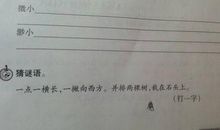 微小
渺小
猜谜语。
一点一横长，一撇向西方。并排两棵树，我在石头上。
（打一字）